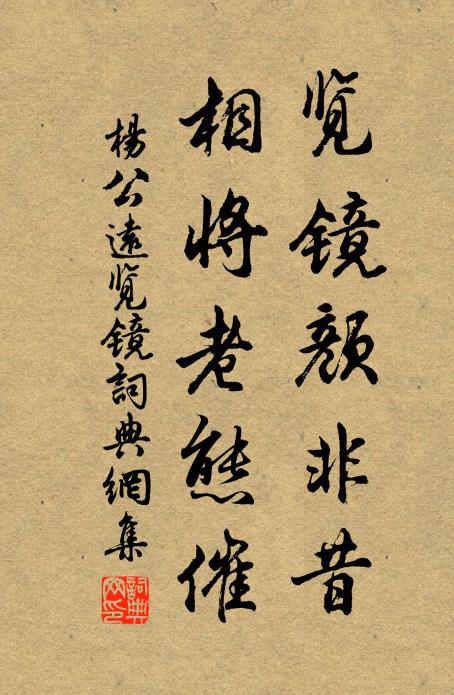 览镜颜非昔
相将老态催
杨公远览镜词典网集
词典网印